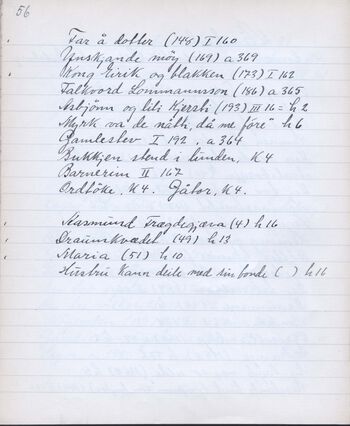 56
Far å dotter (148) I 160
Unskjande möy (169) a 369
Kong Eirik og blakken (173) I 162
Falkvord Lommannsson (186) a 365
Asbjönn og liti Kjersti (193) III 16 = h 2
"Myrk va de nåttr, då me före" h 6
Gamlestev I 192, a 364
Bukkjen stend i lunden, K 4
Barnerim II 167
Ordtöke, K 4. Gåtor, K 4.
Åsmund Frægdegjæva (4) h 16
Draumkvædet (49) h 13
Maria (51) h 10
Hustru kann deile med sin bonde ( ) h 16